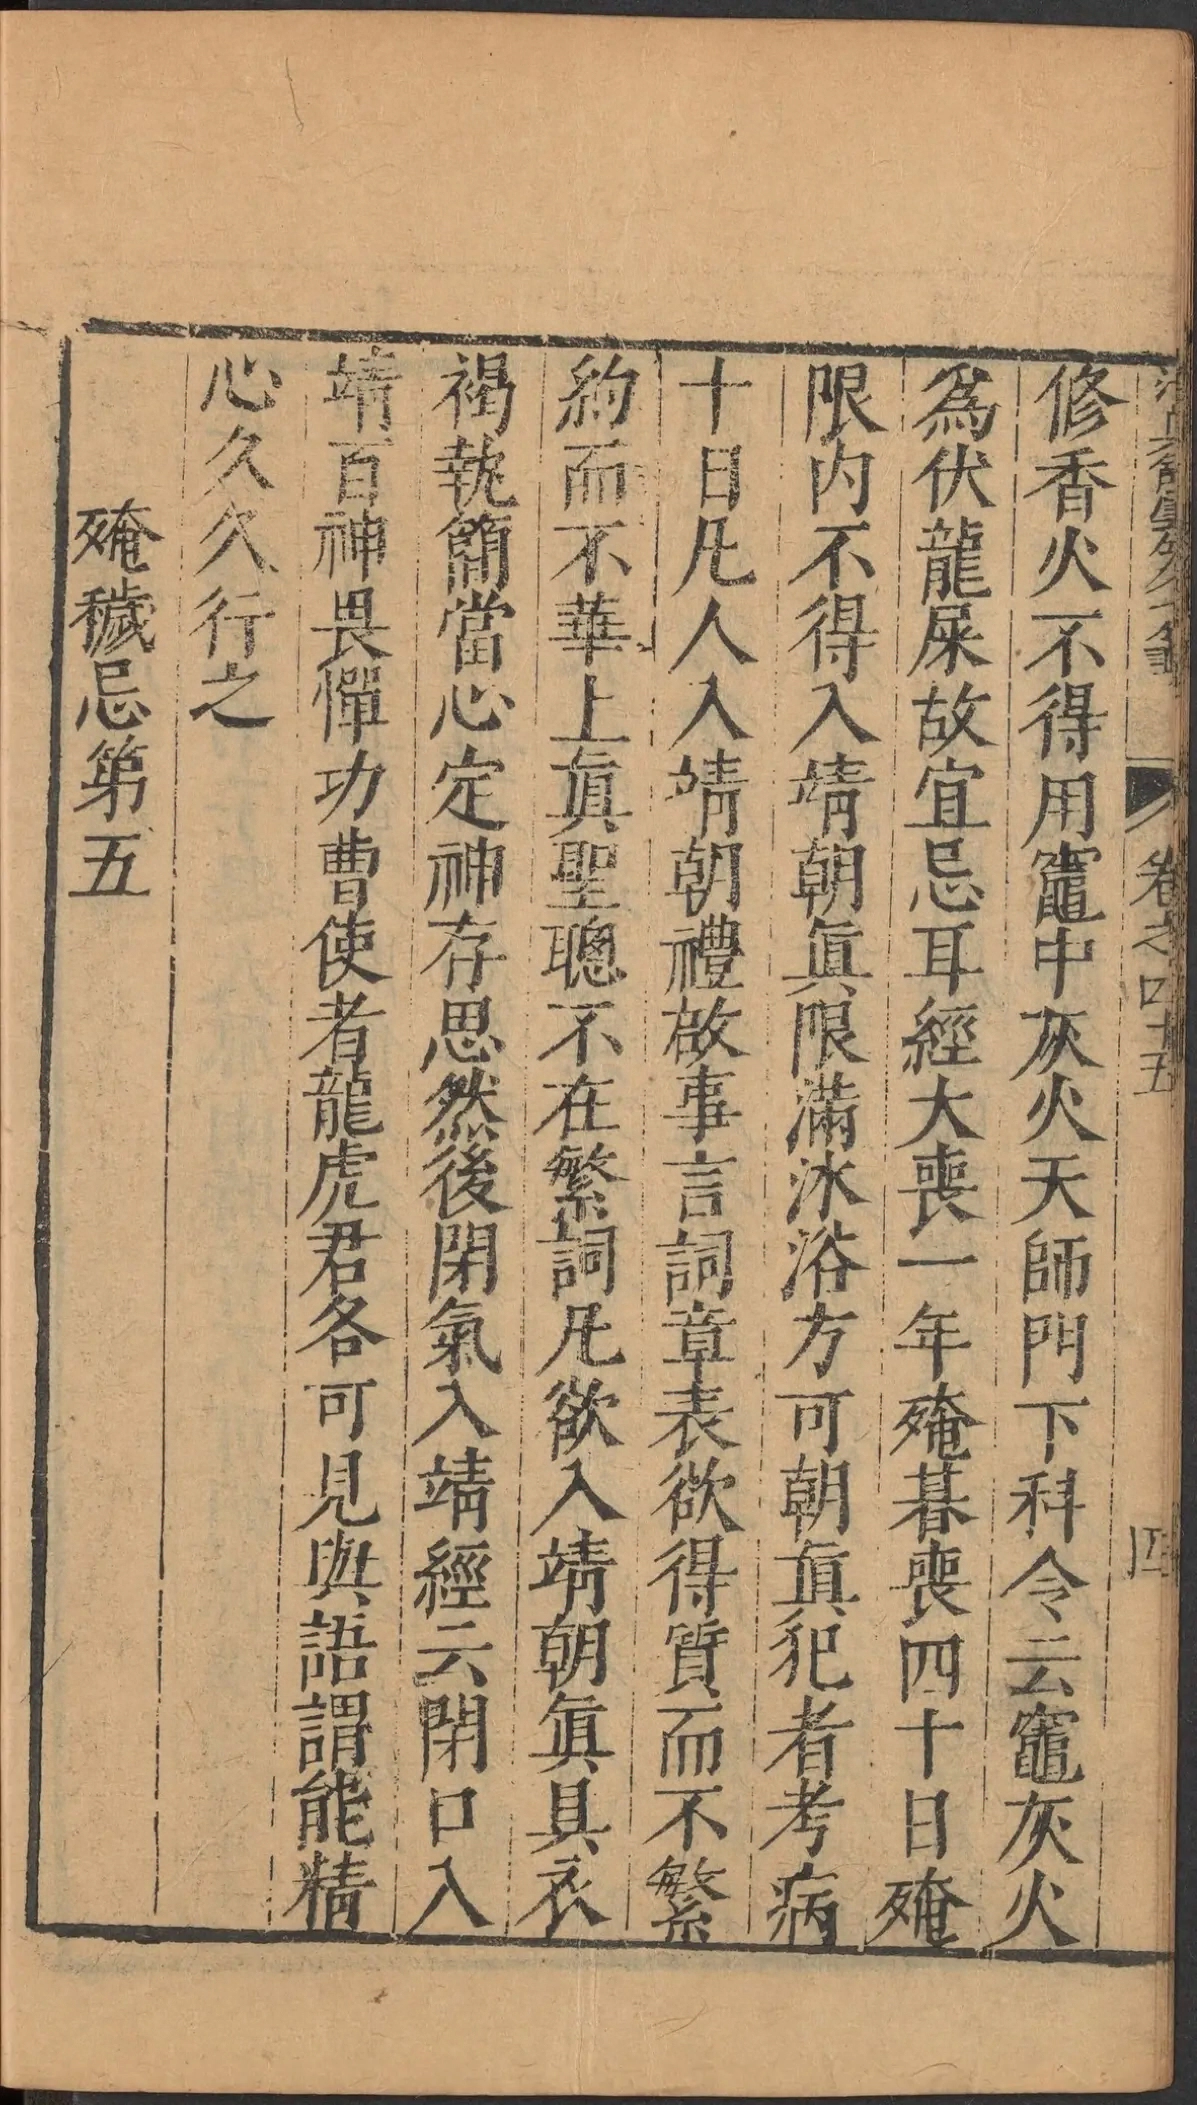 修香火不得用竈中灰火天師門下科令云竈灰火
為伏龍屎故宜忌耳經大喪一年殗朞喪四十日殗
限内不得入靖朝眞限滿沐浴方可朝眞犯者考病
十日凡人入靖朝禮啟事言詞章表欲得質而不繁
約而不華上眞聖聰不在繁詞凡欲入靖朝眞具衣
褐執簡當心定神存思然後閉氣入靖經云閉口入
靖百神畏憚功曹使者龍虎君各可見與語謂能精
心久久行之
殗穢忌第五
卷之四十五
四